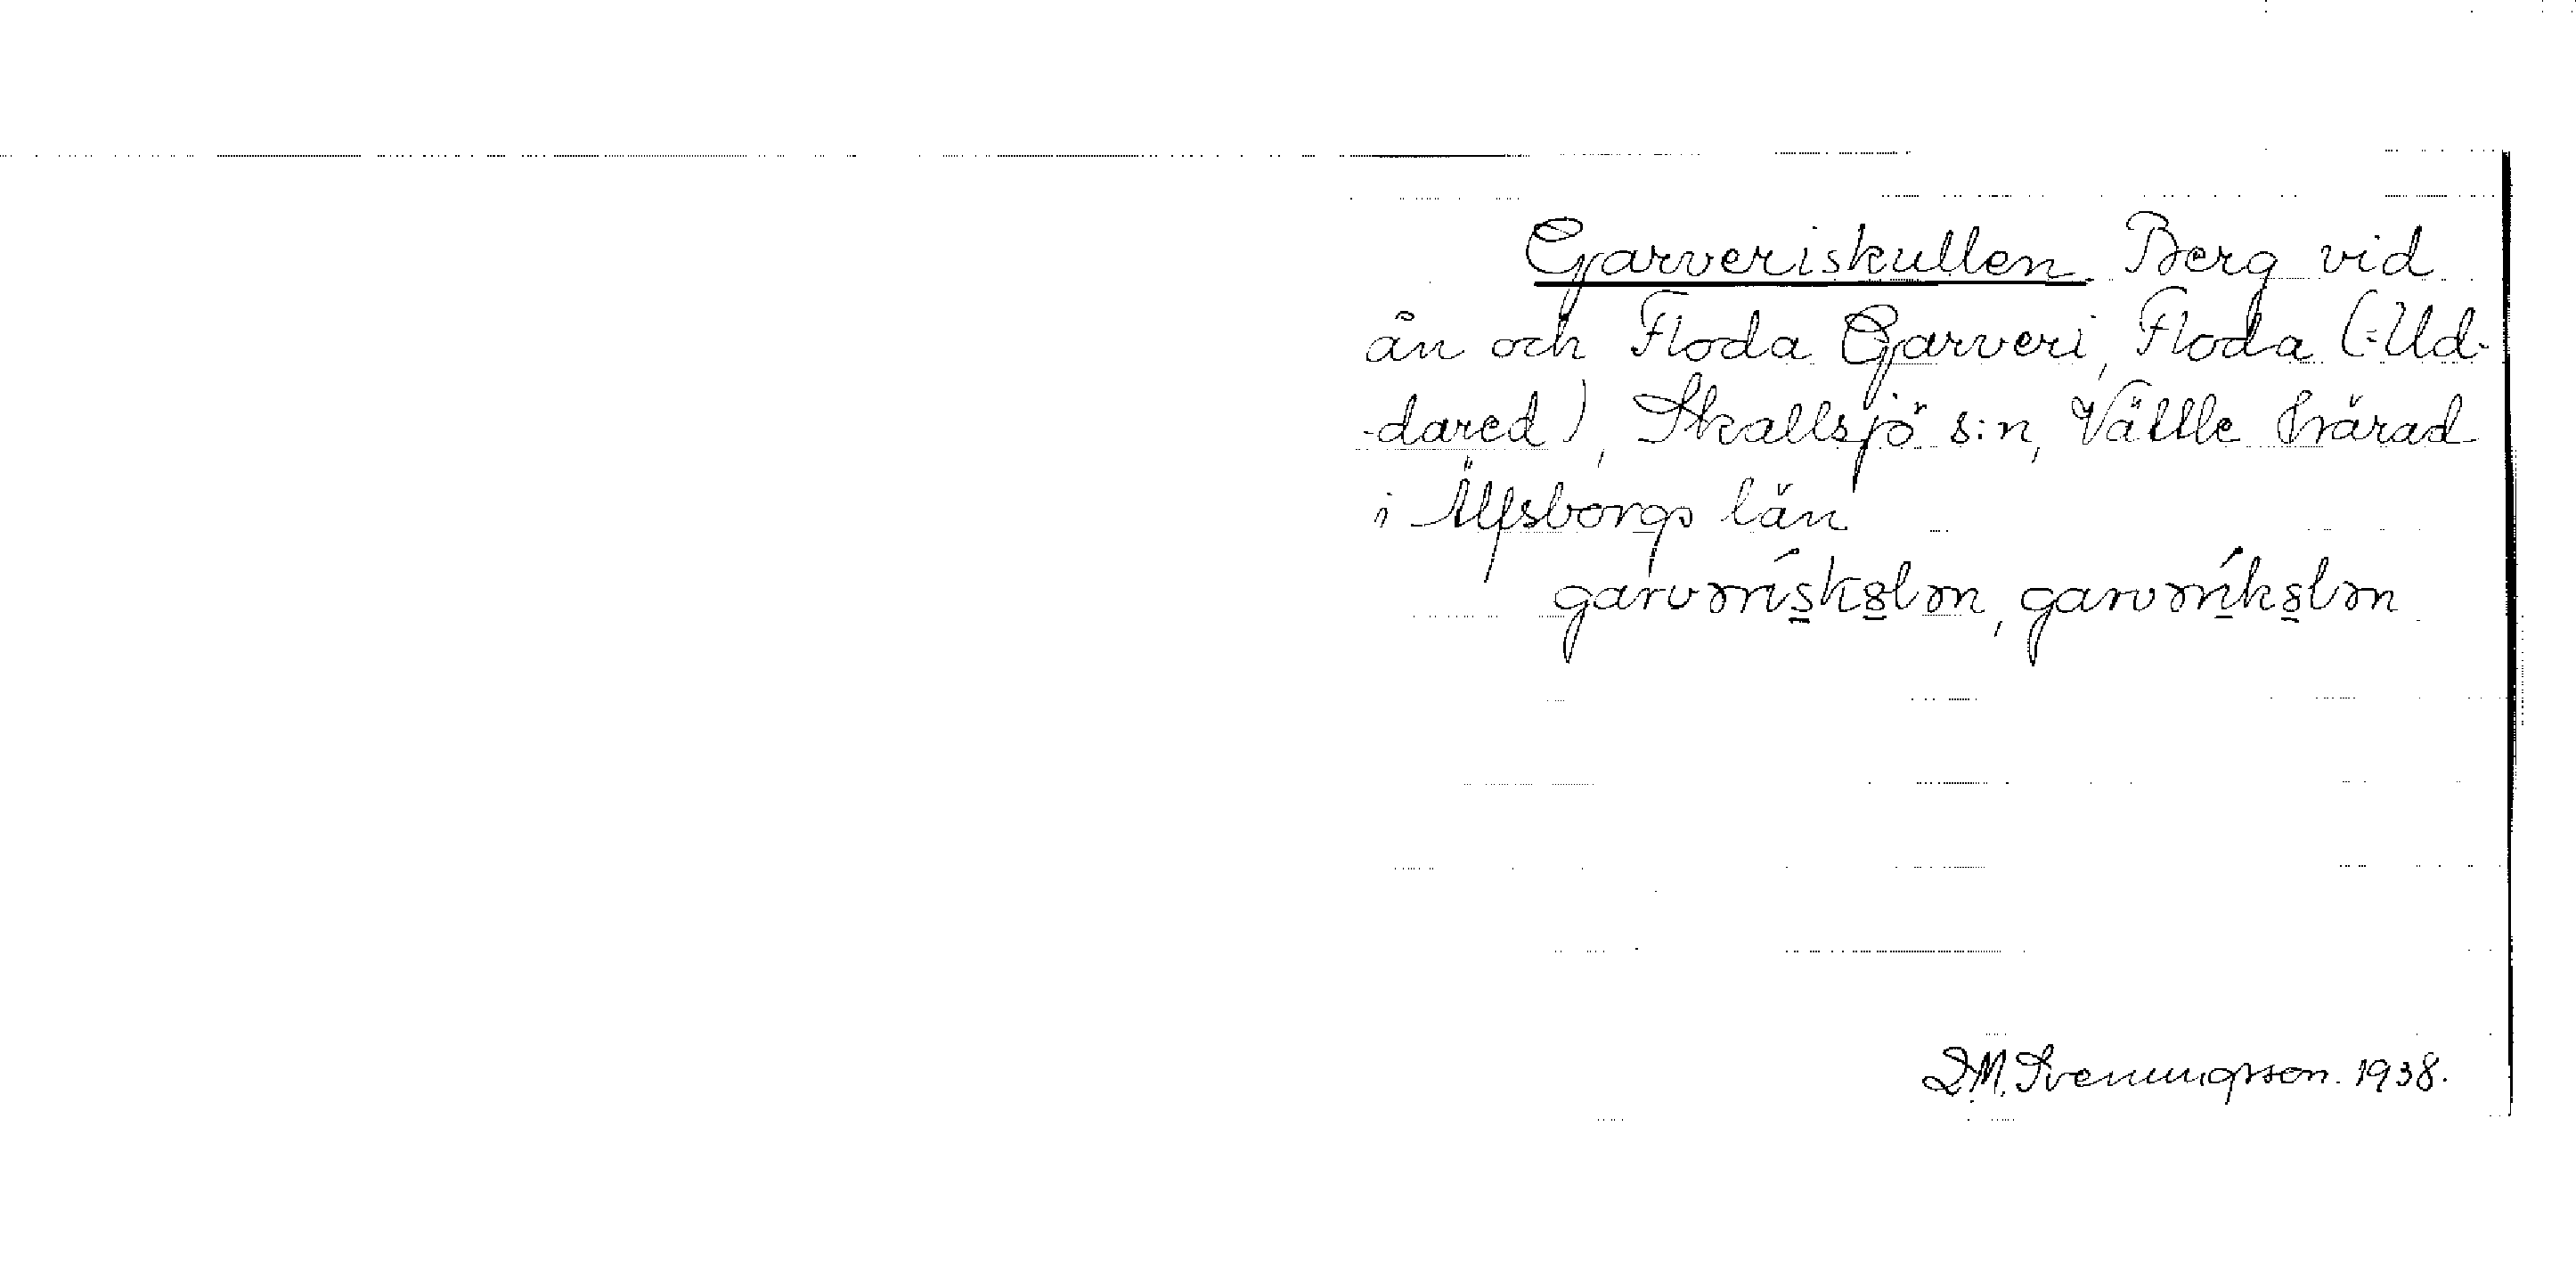 Garveriskullen. Berg vid
ån och Floda Garveri, Floda (=Ud-
-dared), Skallsjö s:n, Vättle härad
i Älfsborgs län
garvərískȣlən, garvəríkȣlən
D.M. Svenungsson. 1938.